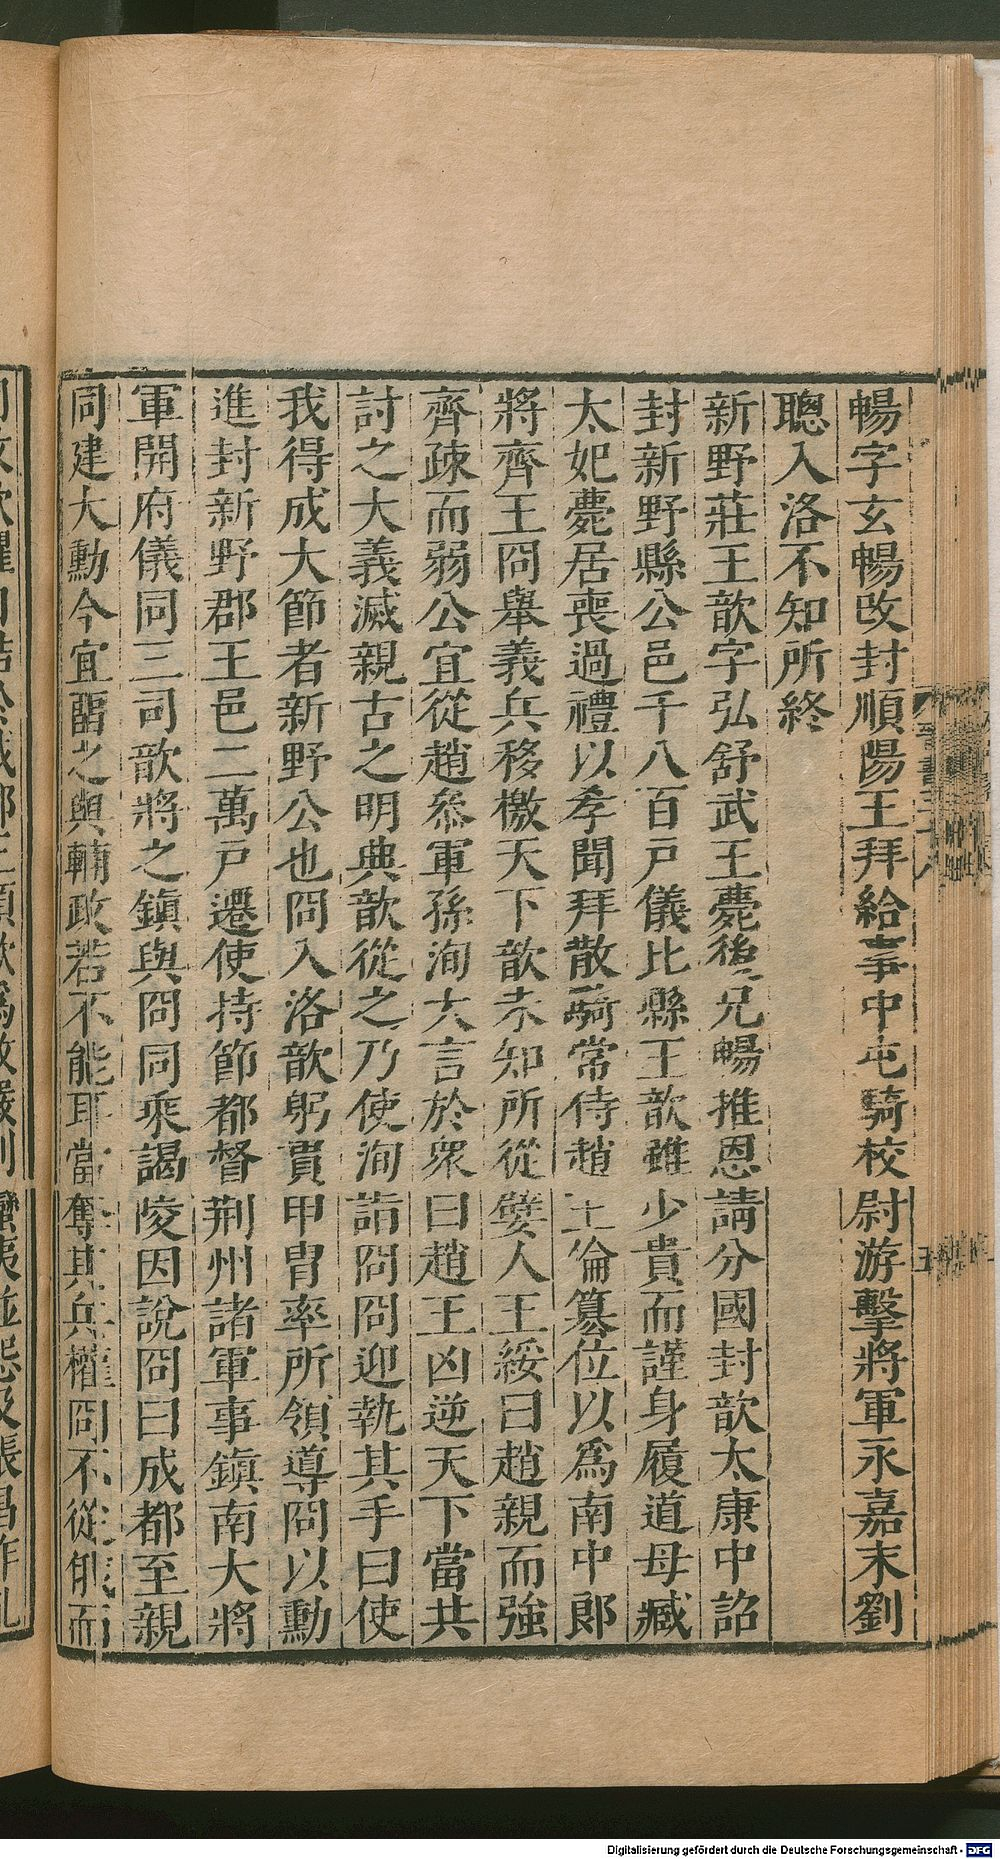 暢字玄暢改封順陽王拜給事中屯騎校尉游擊將軍永嘉末劉
聰入洛不知所終
新野莊王歆字弘舒武王薨後兄暢推恩請分國封歆太康中詔
封新野縣公邑千八百戶儀比縣王歆雖少貴而謹身履道母臧
太妃薨居喪過禮以孝聞拜散騎常侍趙王倫篡位以爲南中郎
將齊王冏舉義兵移檄天下歆未知所從嬖人王綏曰趙親而強
齊疎而弱公宜從趙叅軍孫洵大言於衆曰趙王凶逆天下當共
討之大義滅親古之明典歆從之乃使洵詣冏冏迎執其手曰使
我得成大節者新野公也冏入洛歆躬貫甲冑率所領導冏以勳
進封新野郡王邑二萬戶遷使持節都督荆州諸軍事鎭南大將
軍開府儀同三司歆將之鎭與冏同乘謁陵因說冏曰成都至親
同建大勳今宜畱之與輔政若不能耳當奪其兵權冏不從俄而
Digitalisierung gefördert durch die Deutsche Forschungsgemeinschaft - DFG